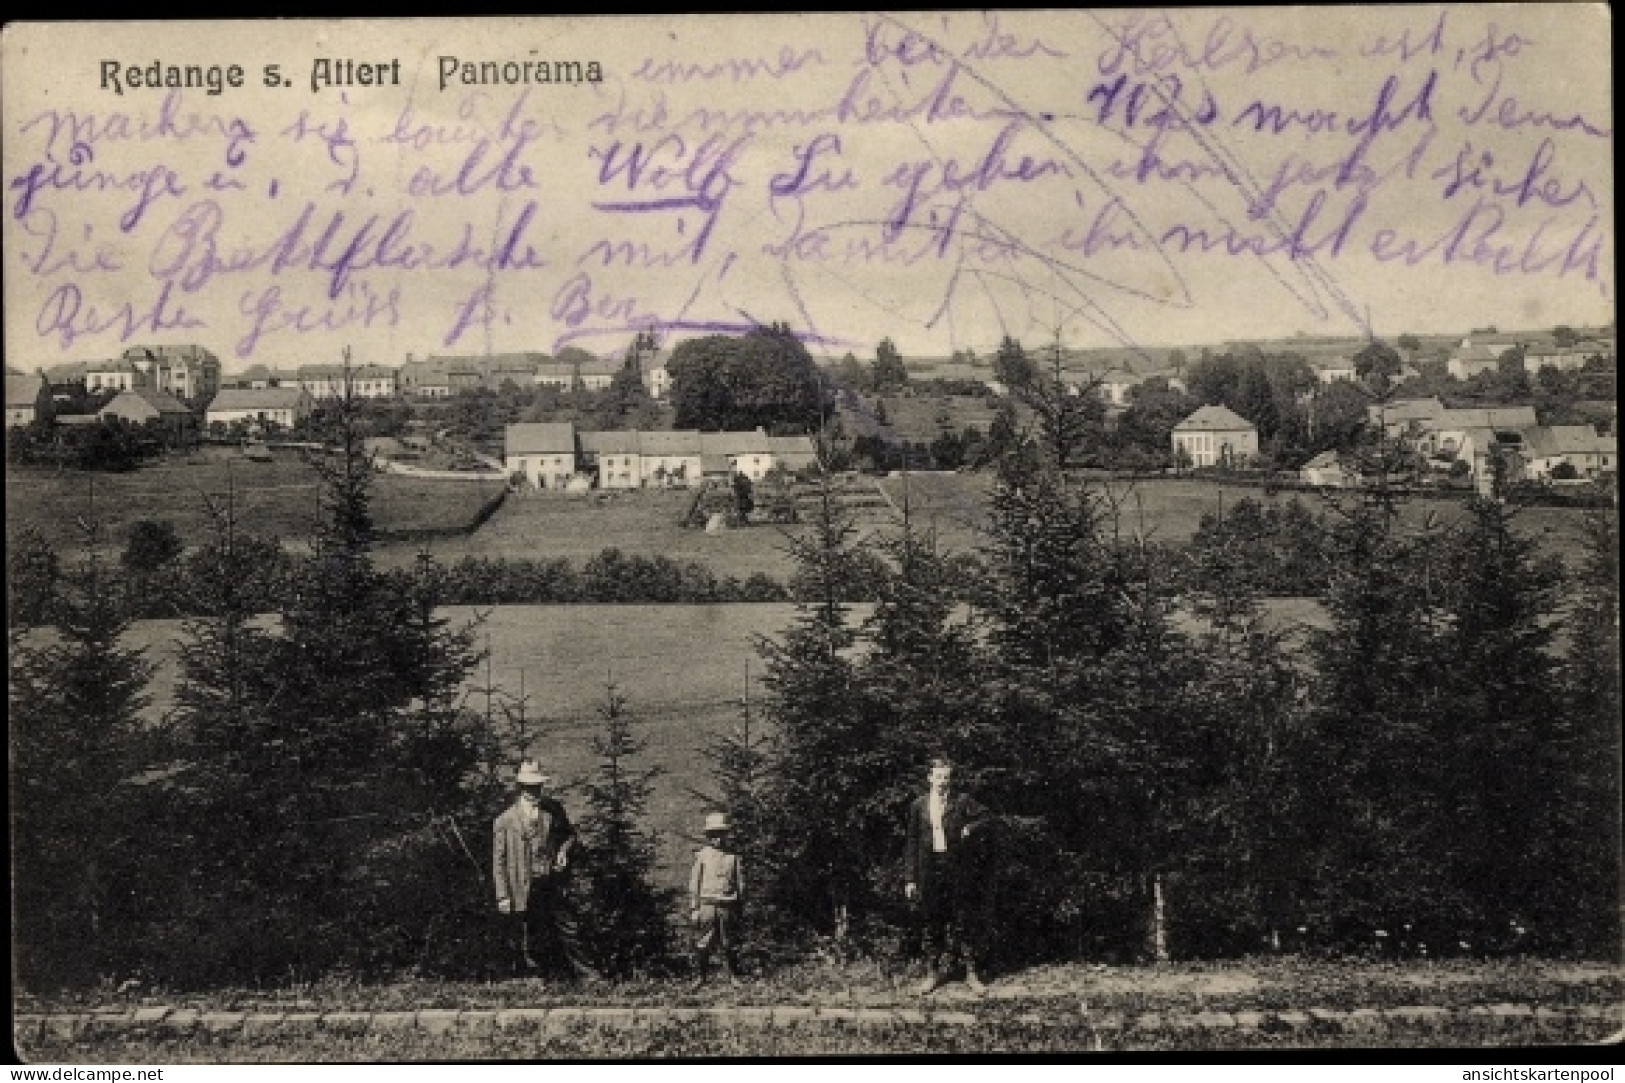 Redange s. Attert Panorama
immer bei den ist, so
machen sie lauter Dummheiten. Was macht denn
junge u. d. alte Wolf Sie geben ihm jetzt sicher
die Bettflasche mit, damit er ihr nicht
Besten Gruss
delcampe.net
ansichtskartenpool